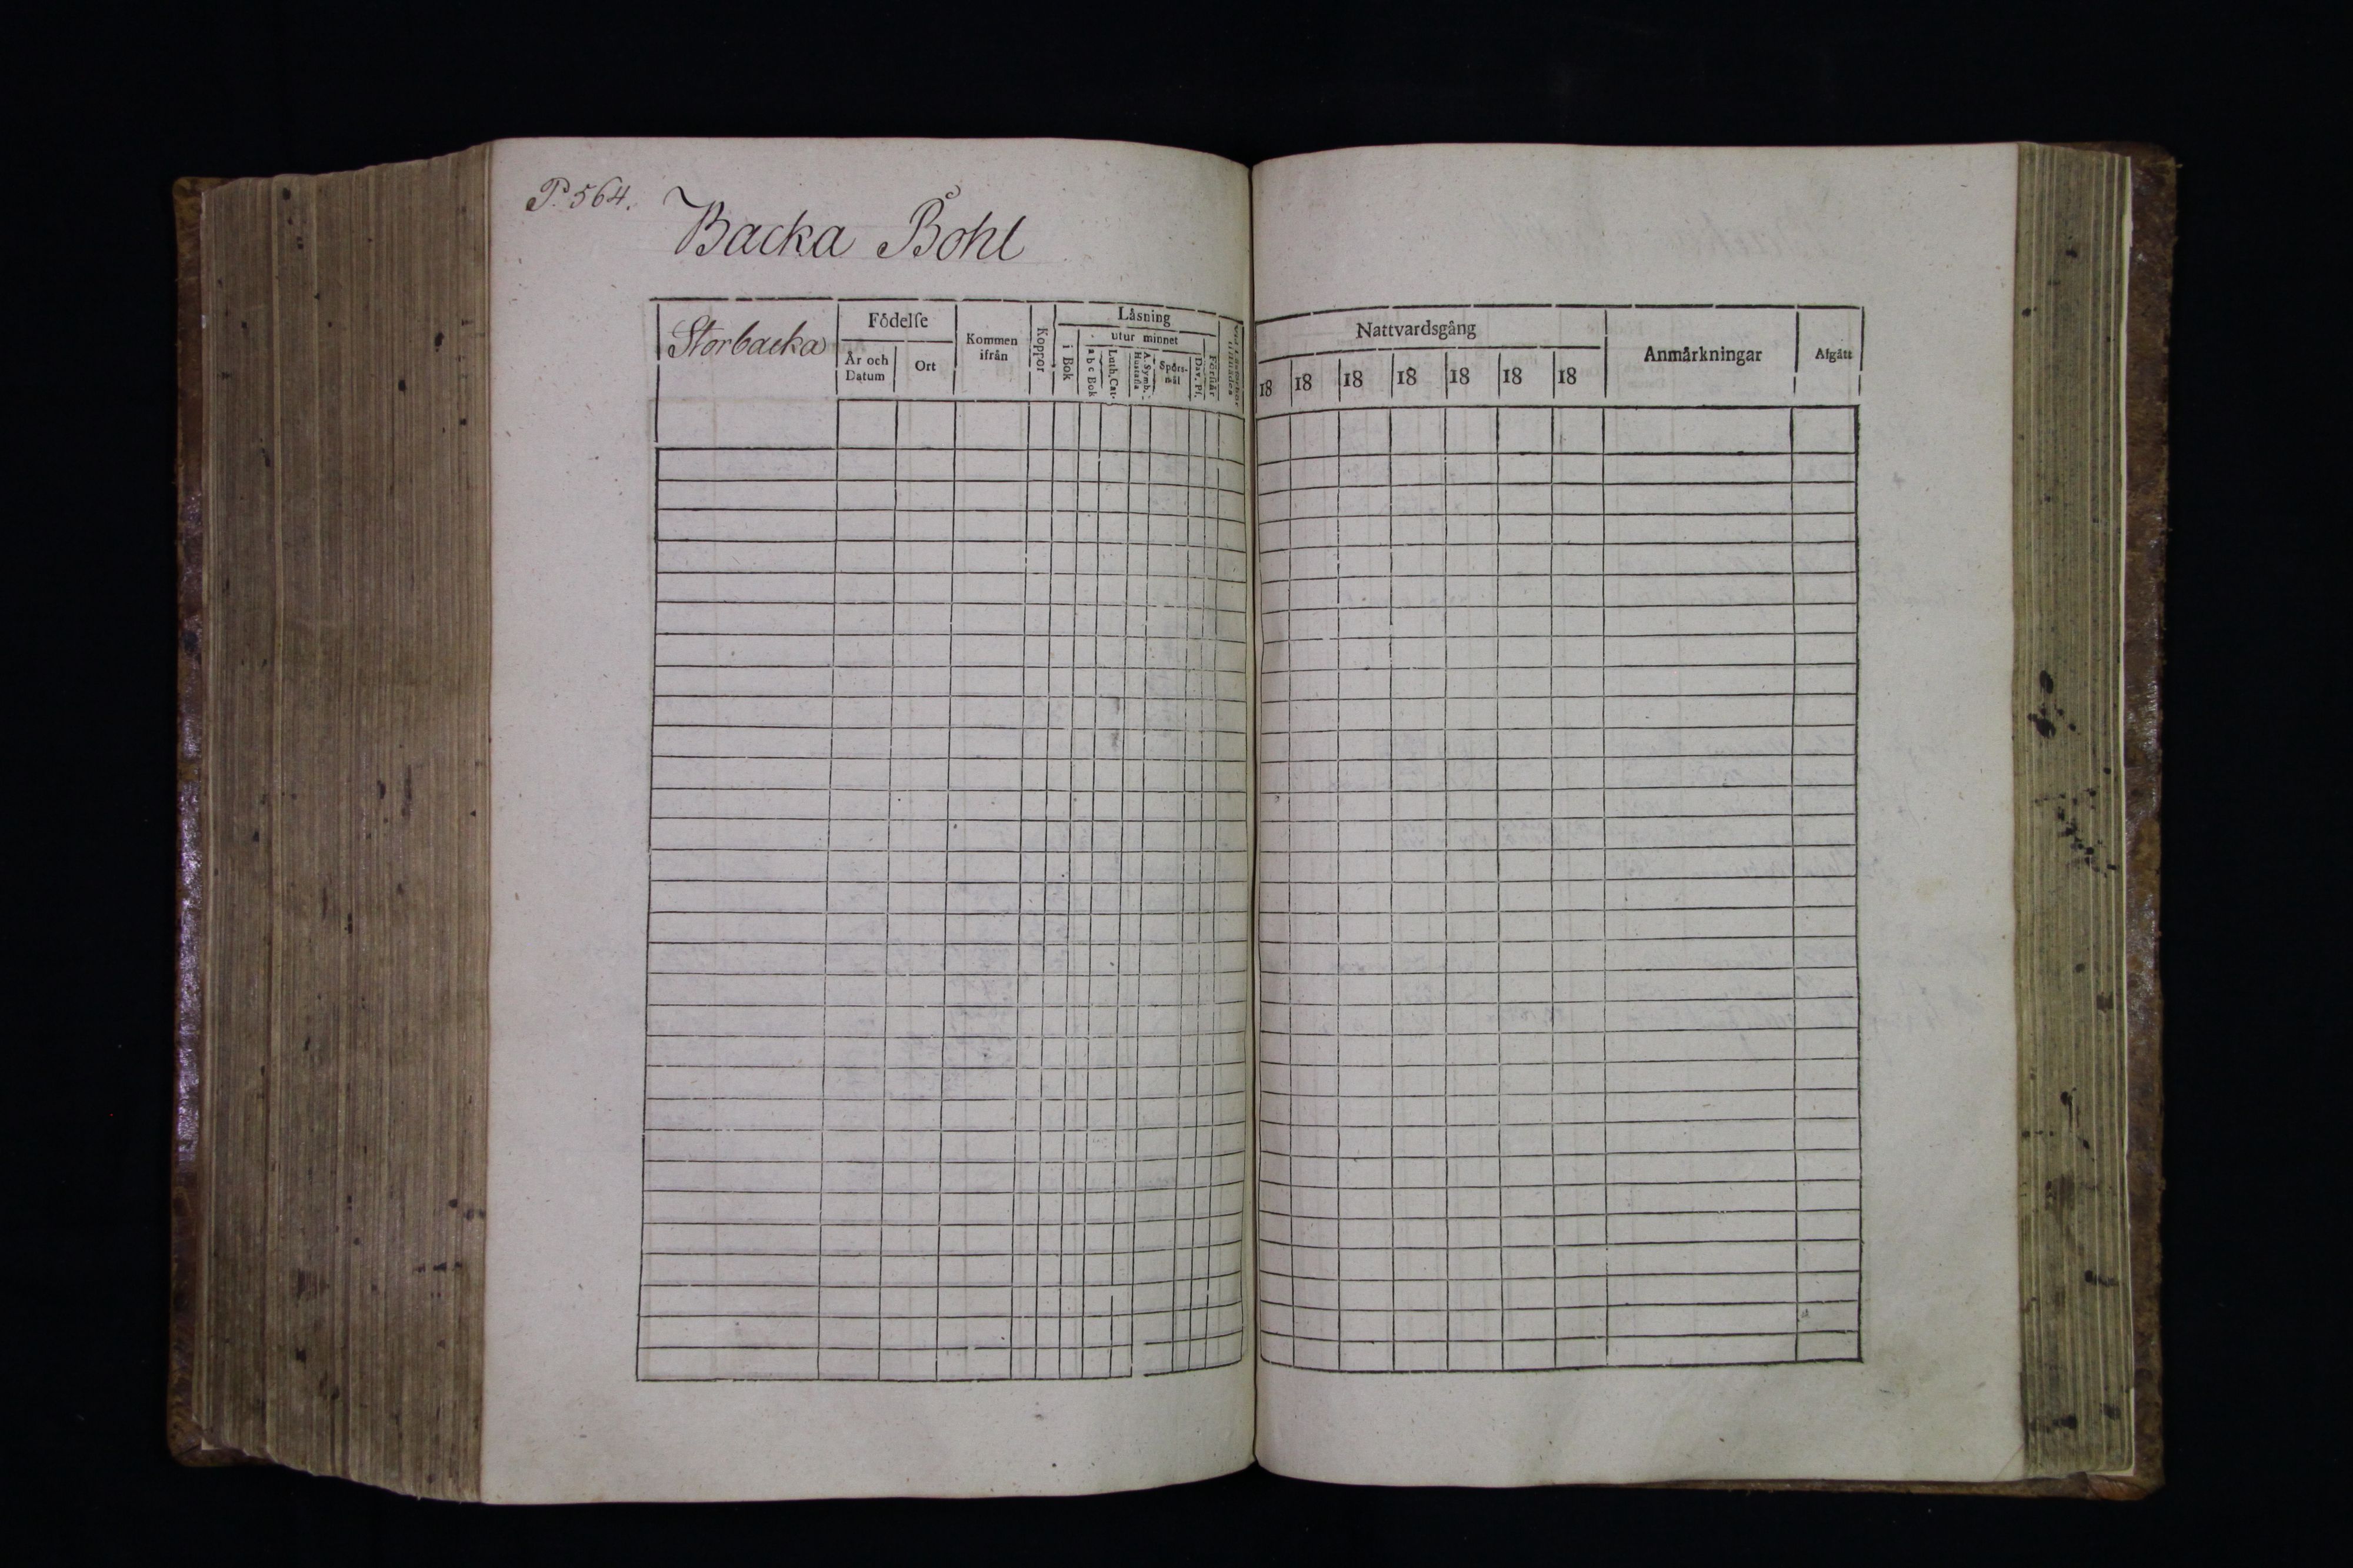 P. 564.
Backa Bohl
Storbacka
Födelſe
År och
Datum
Ort
Kommen
ifrån
Koppor
Låsning
i Bok
utur minnet
a b c Bok
Luth. Cat.
A. Symb.
Huſtafla
Spörs-
mål
Dav. Pſ.
Förſtår
Nattvardsgång
18 18 18 18 18 18 18
Anmärkningar
Afgått